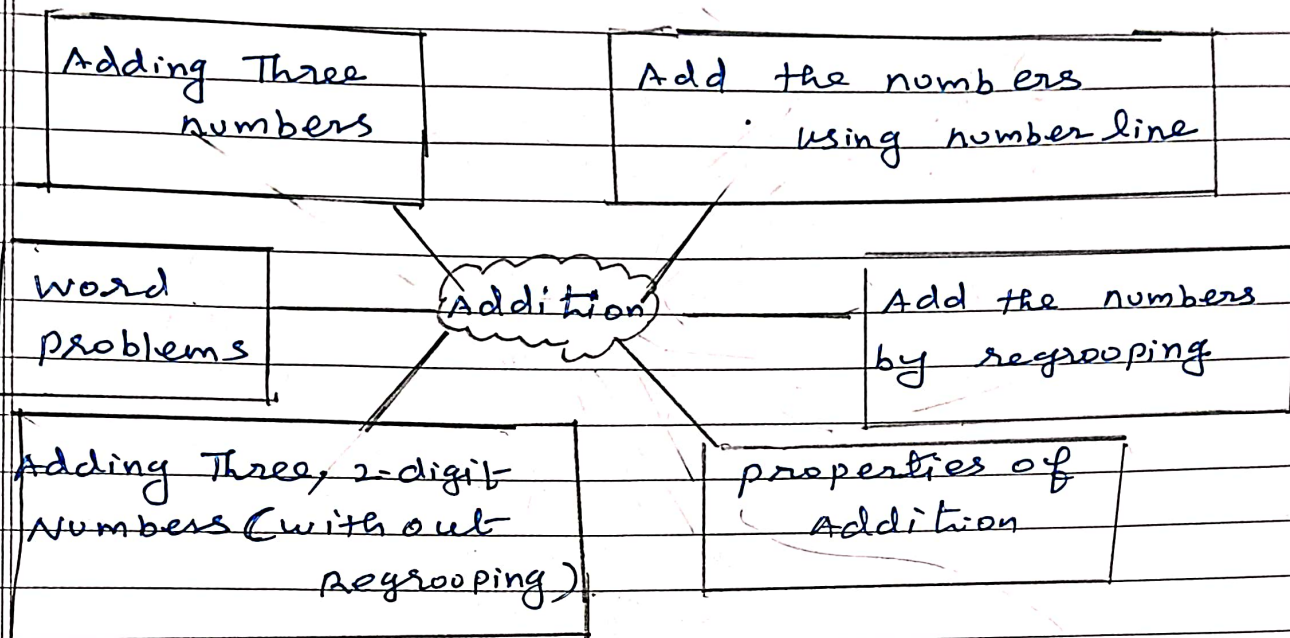 Adding Three
numbers
Add the numbers
using number line
word
problems
Addition
Add the numbers
by regrooping
Adding Three, 2-digit
Numbers (without
Regrooping)
properties of
Addition